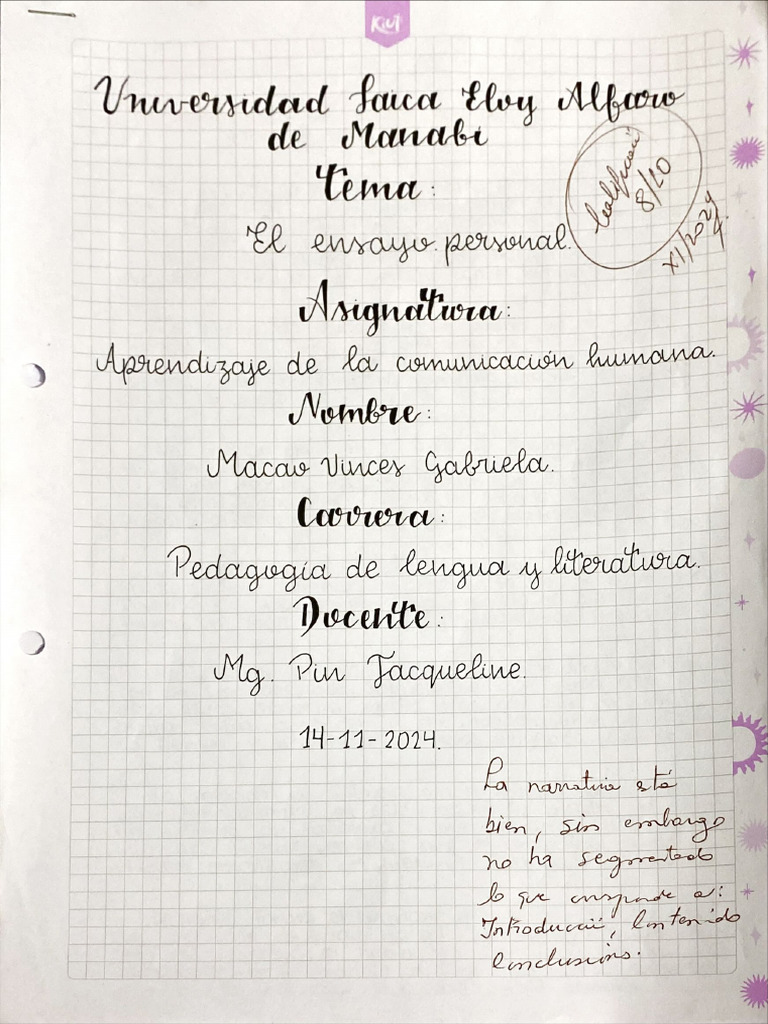 KIUT
Universidad Laica Eloy Alfaro
de Manabí
Tema:
El ensayo personal.
Calificación
8/20
XI/2024
Asignatura:
Aprendizaje de la comunicación humana.
Nombre:
Macao Vinces Gabriela.
Carrera:
Pedagogía de lengua y literatura.
Docente:
Mg. Pin Jacqueline.
14-11-2024.
La narrativa está
bien, sin embargo
no ha segmentado
lo que corresponde a:
Introducción, Contenido
Conclusions.